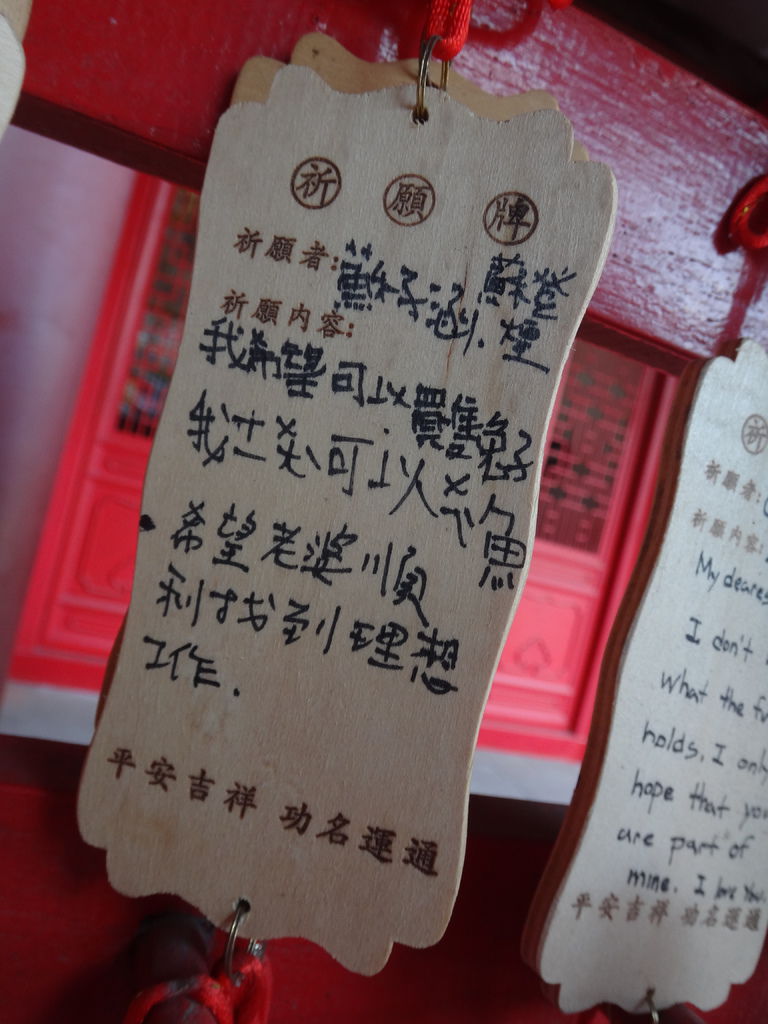 祈願牌
祈願者:蘇子涵.蘇登煙
祈願內容:
我希望可以買隻兔子
我也必可以
希望老婆順
利找到理想
工作.
平安吉祥 功名運通
祈
祈願者:
祈願內容:
My deares
I don't
what the fu
holds, I only
hope that you
are part of
mine. I love you.
平安吉祥 功名運通